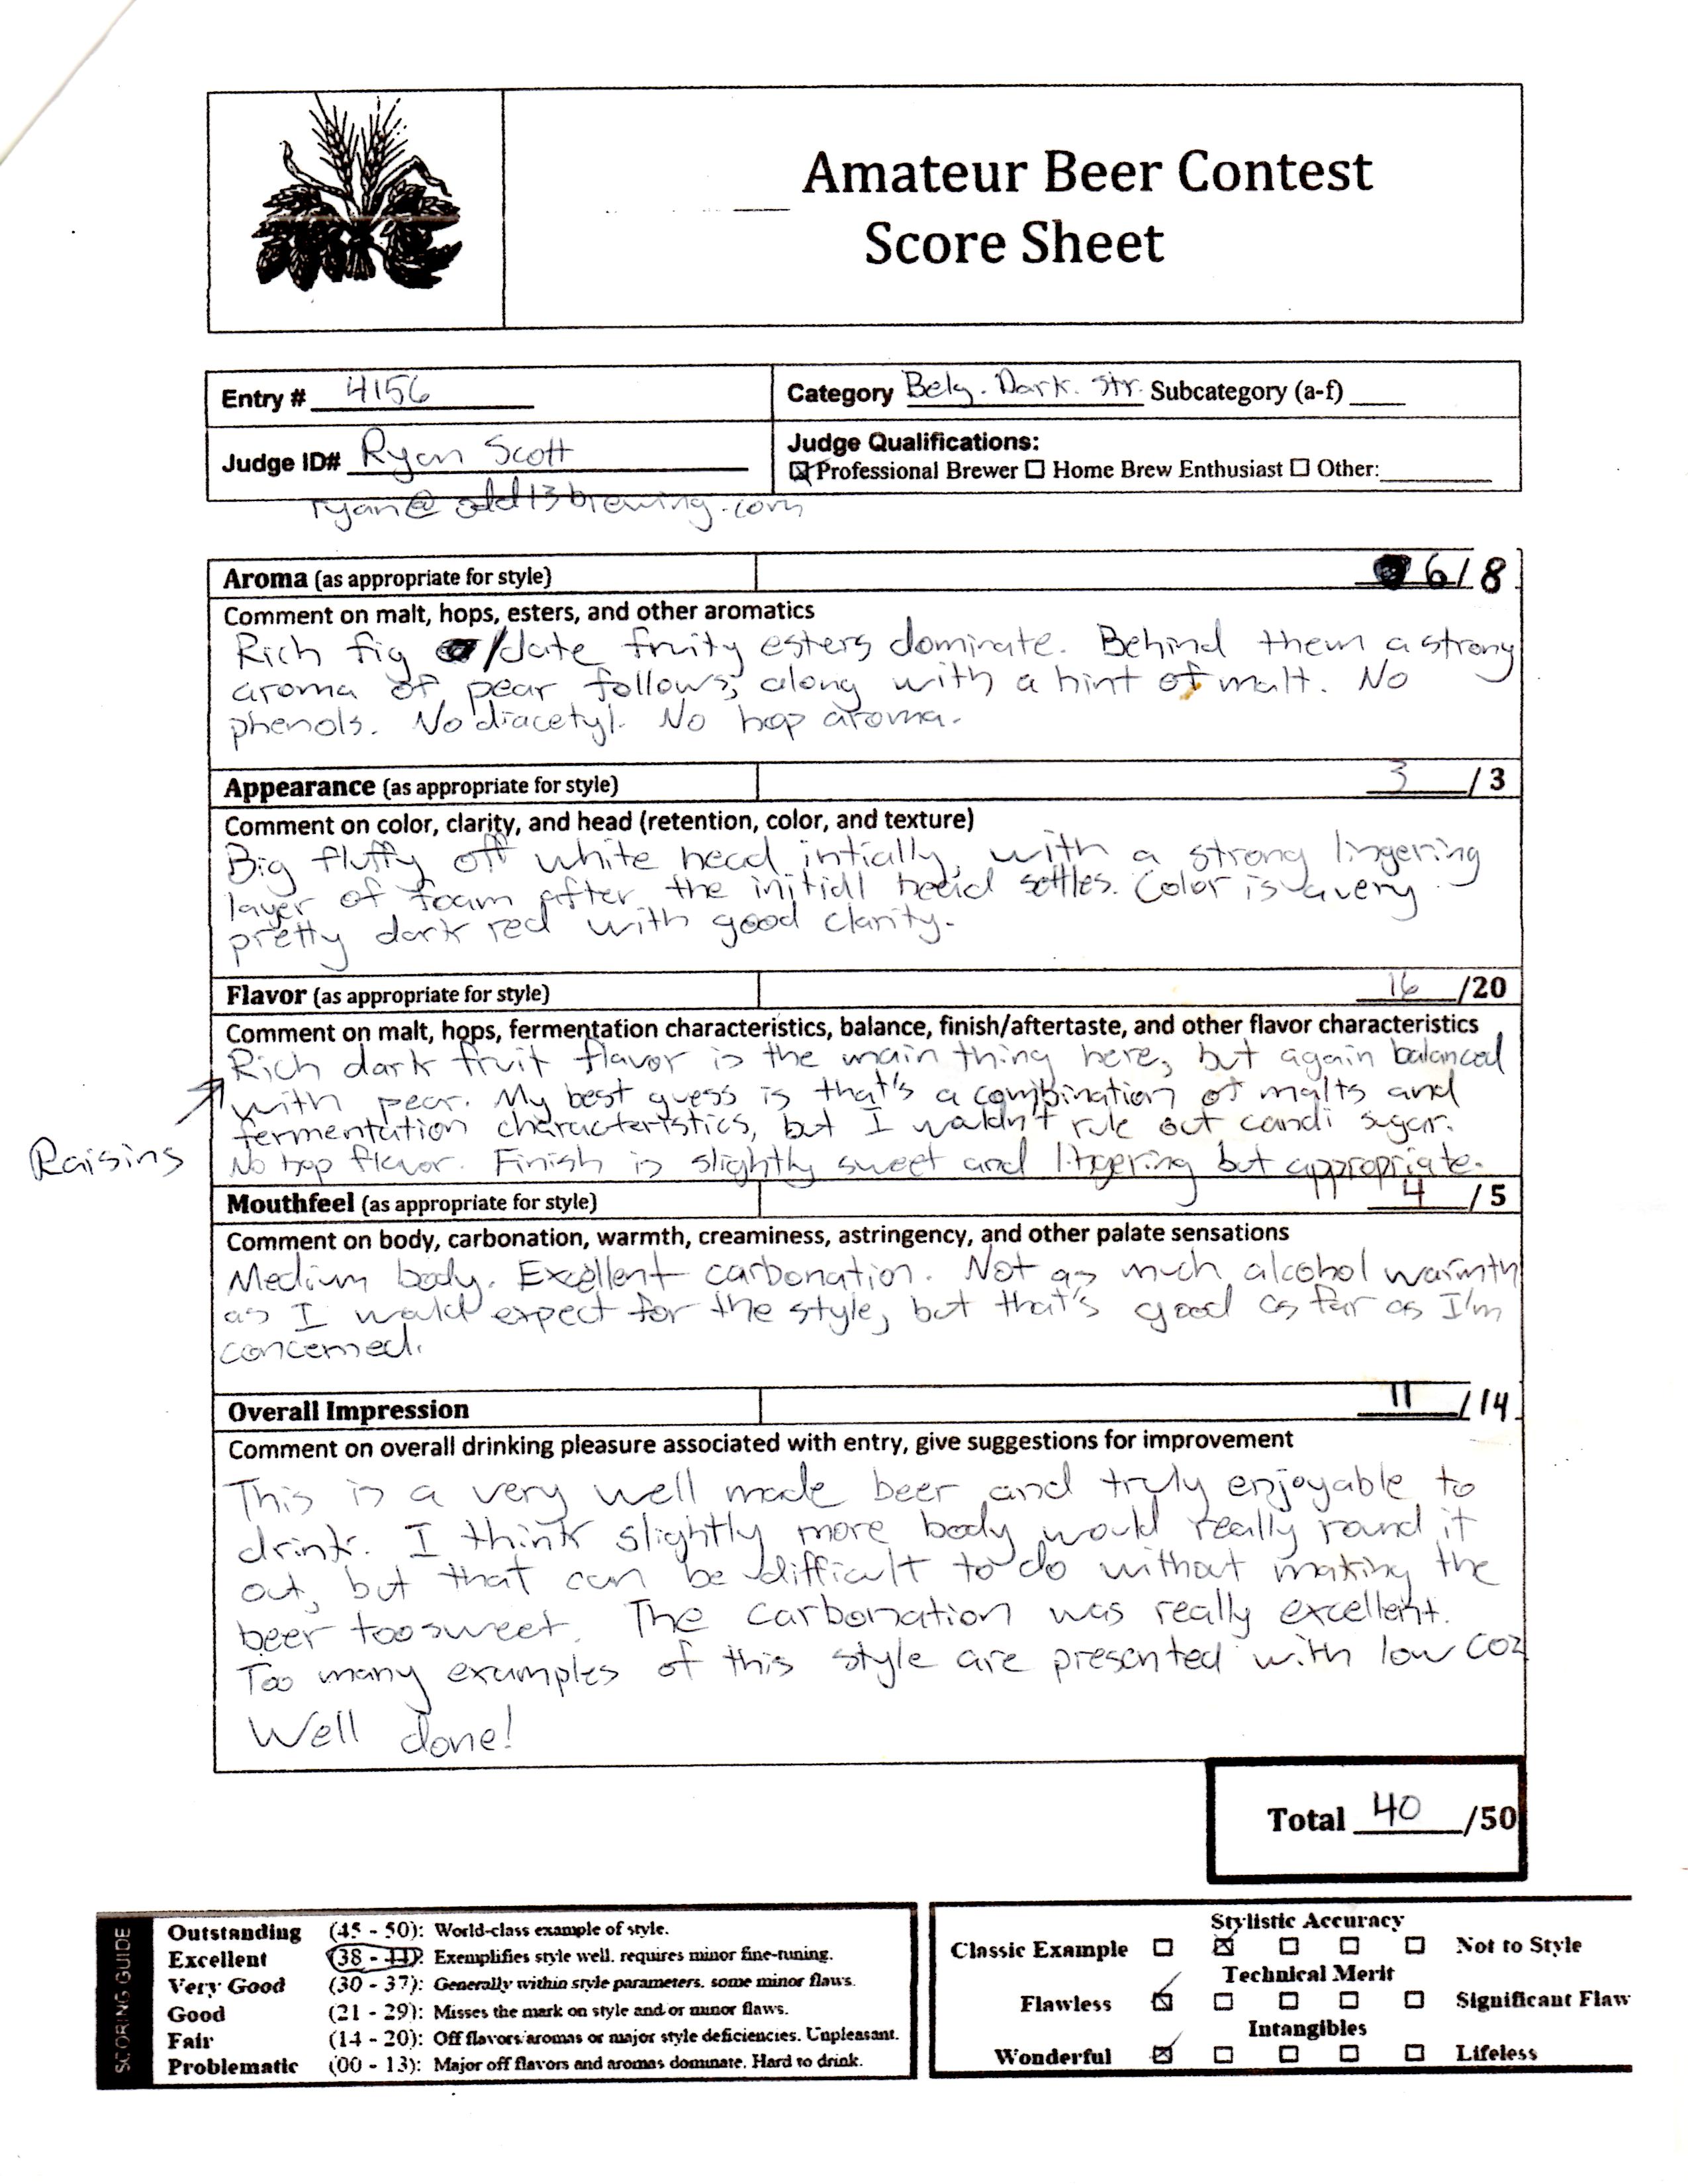 Amateur Beer Contest
Score Sheet
Entry # 4156
Category Belg. Dark. Str. Subcategory (a-f)
Judge ID# Ryan Scott
Judge Qualifications:
Professional Brewer Home Brew Enthusiast Other:
ryan@odd13brewing.com
Aroma (as appropriate for style) 6/8
Comment on malt, hops, esters, and other aromatics
Rich fig /date fruity esters dominate. Behind them a strong
aroma of pear follows, along with a hint of malt. No
phenols. No diacetyl. No hop aroma.
Appearance (as appropriate for style) 3/3
Comment on color, clarity, and head (retention, color, and texture)
Big fluffy off white head intially, with a strong lingering
layer of foam after the initial head settles. Color is a very
pretty dark red with good clarity.
Flavor (as appropriate for style) 16/20
Comment on malt, hops, fermentation characteristics, balance, finish/aftertaste, and other flavor characteristics
Rich dark fruit flavor is the main thing here, but again balanced
with pear. My best guess is that's a combination of malts and
fermentation characteristics, but I wouldn't rule out candi sugar.
Raisins
No hop flavor. Finish is slightly sweet and lingering but appropriate.
Mouthfeel (as appropriate for style) 4/5
Comment on body, carbonation, warmth, creaminess, astringency, and other palate sensations
Medium body. Excellent carbonation. Not as much alcohol warmth
as I would expect for the style, but that's good as far as I'm
concerned.
Overall Impression 11/14
Comment on overall drinking pleasure associated with entry, give suggestions for improvement
This is a very well made beer and truly enjoyable to
drink. I think slightly more body would really round it
out, but that can be difficult to do without making the
beer too sweet. The carbonation was really excellent.
Too many examples of this style are presented with low CO2
Well done!
Total 40/50
SCORING GUIDE
Outstanding (45 - 50): World-class example of style.
Excellent (38 - 44): Exemplifies style well, requires minor fine-tuning.
Very Good (30 - 37): Generally within style parameters, some minor flaws.
Good (21 - 29): Misses the mark on style and/or minor flaws.
Fair (14 - 20): Off flavors/aromas or major style deficiencies. Unpleasant.
Problematic (00 - 13): Major off flavors and aromas dominate. Hard to drink.
Stylistic Accuracy
Classic Example Not to Style
Technical Merit
Flawless Significant Flaw
Intangibles
Wonderful Lifeless